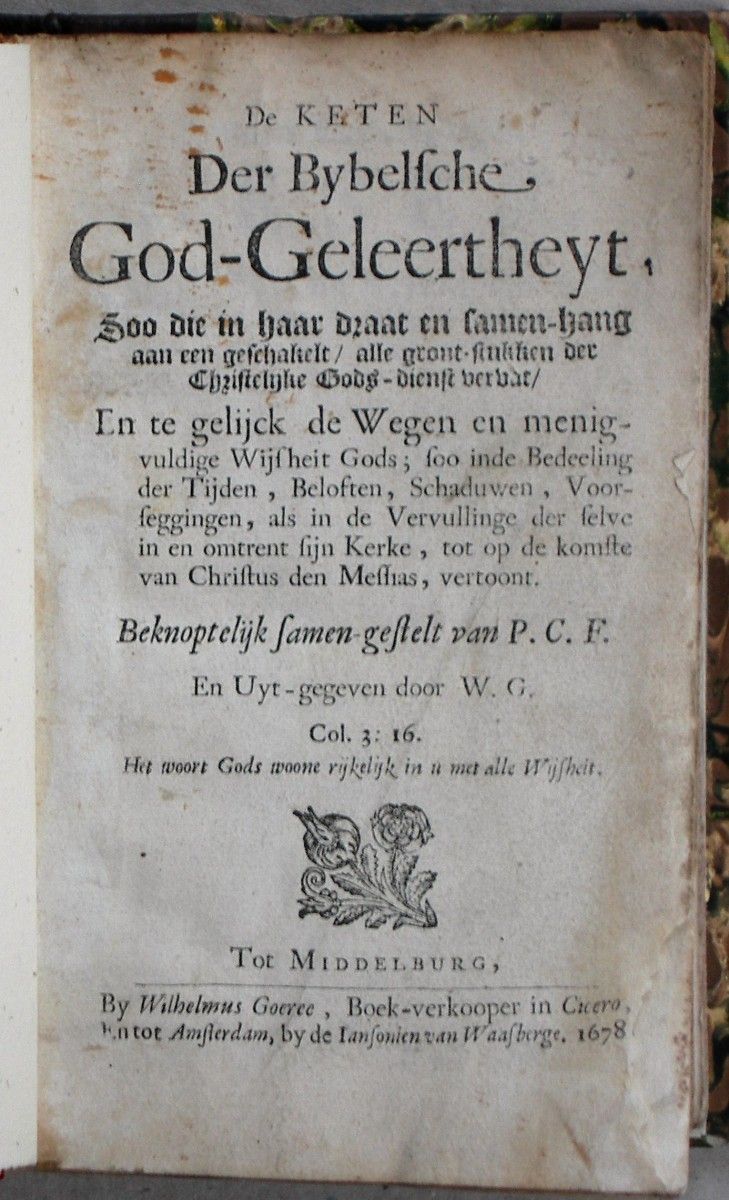 De KETEN
Der Bybelſche
God-Geleertheyt,
Soo die in haar draat en ſamen-hang
aan een geſchakelt/ alle gront-ſtukken der
Chriſtelijke Gods-dienſt vervat/
En te gelijck de Wegen en menig-
vuldige Wijſheit Gods; ſoo inde Bedeeling
der Tijden, Beloften, Schaduwen, Voor-
ſeggingen, als in de Vervullinge der ſelve
in en omtrent ſijn Kerke, tot op de komſte
van Chriſtus den Meſſias, vertoont.
Beknoptelijk ſamen-geſtelt van P. C. F.
En Uyt-gegeven door W. G.
Col. 3: 16.
Het woort Gods woone rijkelijk in u met alle Wijſheit.
Tot MIDDELBURG,
By Wilhelmus Goeree, Boek-verkooper in Cicero,
En tot Amſterdam, by de Ianſonien van Waaſberge. 1678